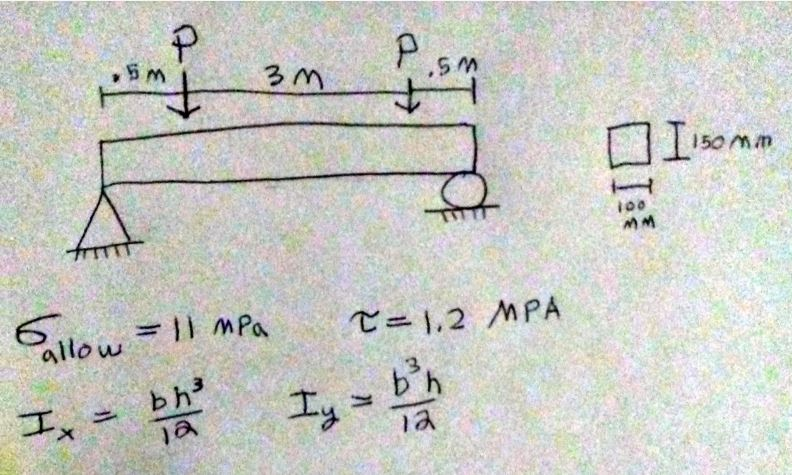 P P
.5 m 3 m .5 m
150 mm
100
mm
σallow = 11 mPa τ = 1.2 MPA
Ix = bh³/12 Iy = b³h/12